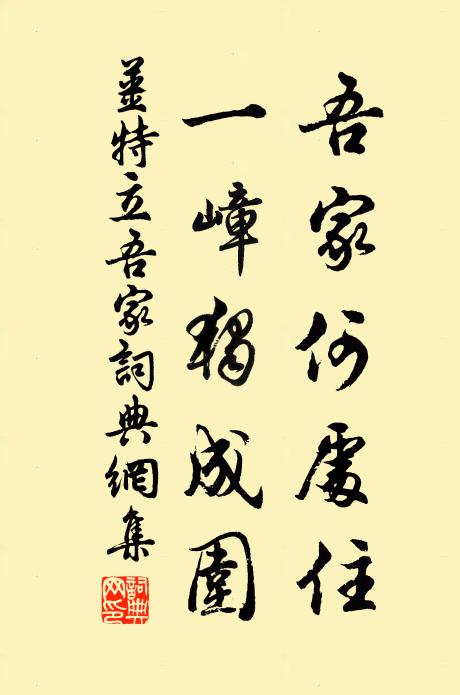 吾家何處住
一嶂獨成圍
姜特立吾家詞典網集
詞典网印